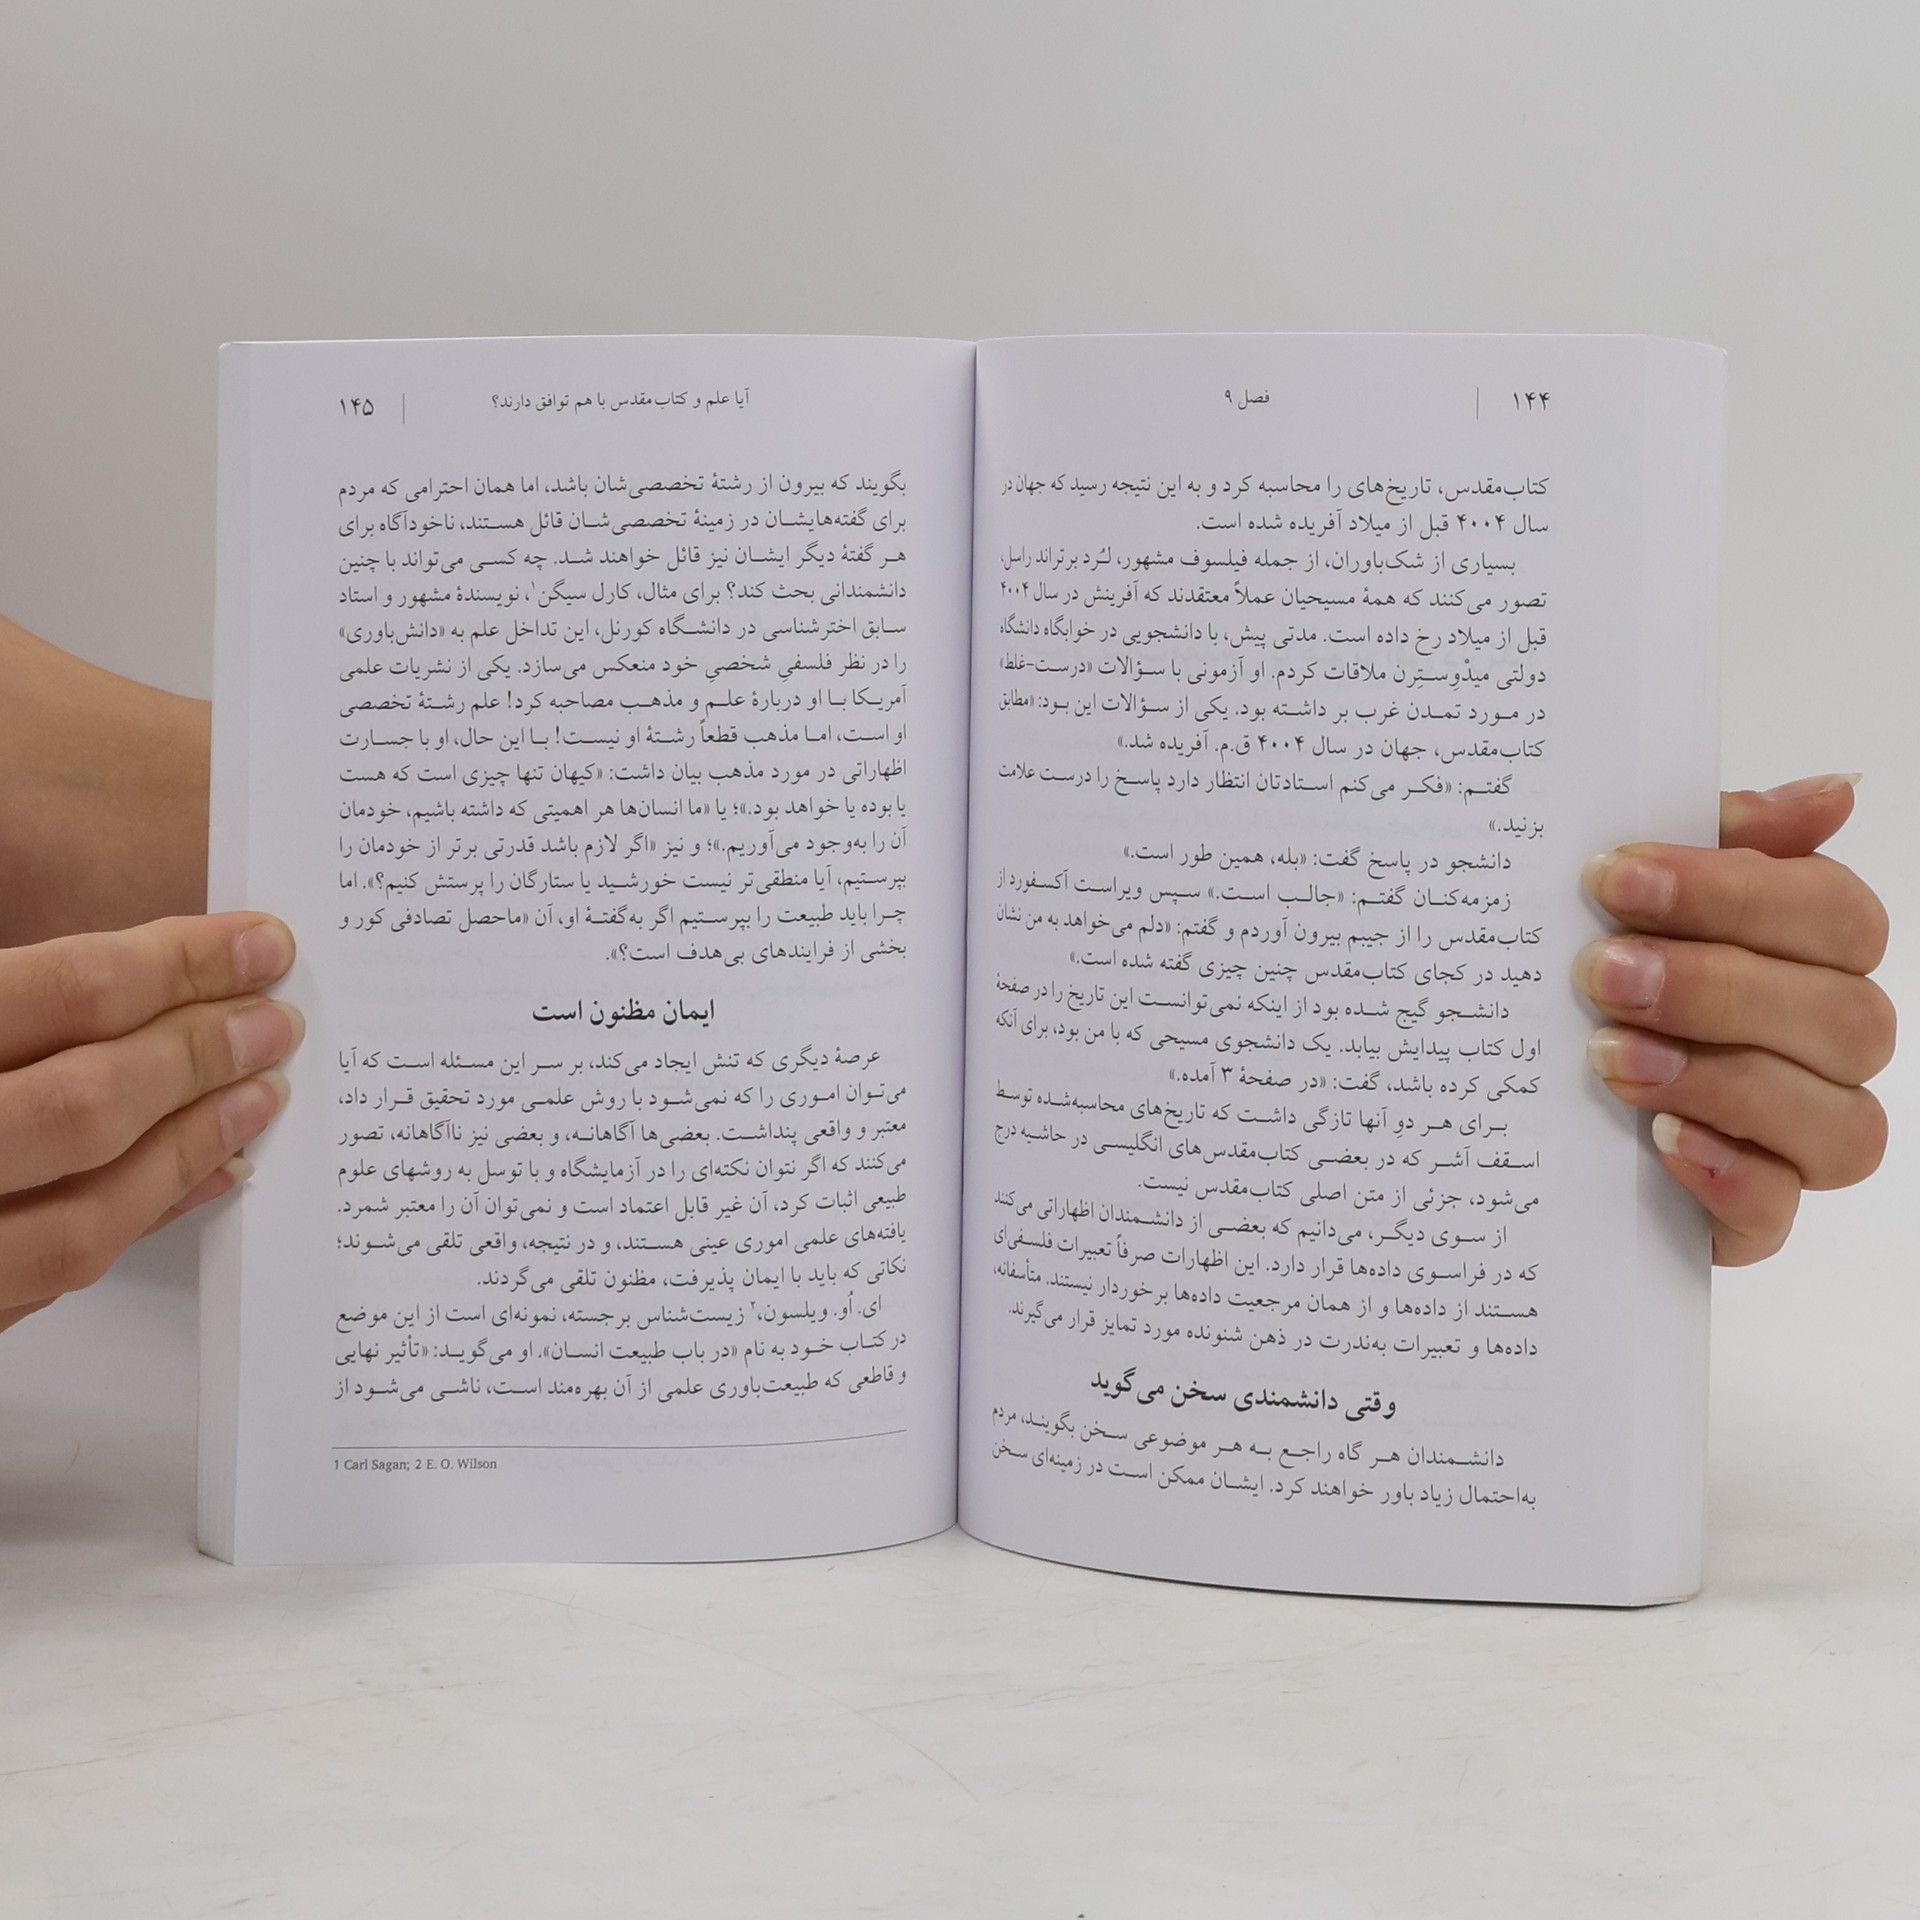 ۱۴۴ | فصل ۹
کتاب‌مقدس، تاریخ‌های را محاسبه کرد و به این نتیجه رسید که جهان در
سال ۴۰۰۴ قبل از میلاد آفریده شده است.
بسیاری از شک‌باوران، از جمله فیلسوف مشهور، لُرد برتراند راسل،
تصور می‌کنند که همهٔ مسیحیان عملاً معتقدند که آفرینش در سال ۴۰۰۴
قبل از میلاد رخ داده است. مدتی پیش، با دانشجویی در خوابگاه دانشگاه
دولتی میدْوِستِرن ملاقات کردم. او آزمونی با سؤالات «درست-غلط»
در مورد تمدن غرب بر داشته بود. یکی از سؤالات این بود: «مطابق
کتاب‌مقدس، جهان در سال ۴۰۰۴ ق.م. آفریده شد.»
گفتم: «فکر می‌کنم استادتان انتظار دارد پاسخ را درست علامت
بزنید.»
دانشجو در پاسخ گفت: «بله، همین طور است.»
زمزمه‌کنان گفتم: «جالب است.» سپس ویراست آکسفورد از
کتاب‌مقدس را از جیبم بیرون آوردم و گفتم: «دلم می‌خواهد به من نشان
دهید در کجای کتاب‌مقدس چنین چیزی گفته شده است.»
دانشجو گیج شده بود از اینکه نمی‌توانست این تاریخ را در صفحهٔ
اول کتاب پیدایش بیابد. یک دانشجوی مسیحی که با من بود، برای آنکه
کمکی کرده باشد، گفت: «در صفحهٔ ۳ آمده.»
برای هر دوِ آنها تازگی داشت که تاریخ‌های محاسبه‌شده توسط
اسقف آشر که در بعضی کتاب‌مقدس‌های انگلیسی در حاشیه درج
می‌شود، جزئی از متن اصلی کتاب‌مقدس نیست.
از سوی دیگر، می‌دانیم که بعضی از دانشمندان اظهاراتی می‌کنند
که در فراسوی داده‌ها قرار دارد. این اظهارات صرفاً تعبیرات فلسفی‌ای
هستند از داده‌ها و از همان مرجعیت داده‌ها برخوردار نیستند. متأسفانه،
داده‌ها و تعبیرات به‌ندرت در ذهن شنونده مورد تمایز قرار می‌گیرند.
وقتی دانشمندی سخن می‌گوید
دانشمندان هر گاه راجع به هر موضوعی سخن بگویند، مردم
به‌احتمال زیاد باور خواهند کرد. ایشان ممکن است در زمینه‌ای سخن
آیا علم و کتاب‌مقدس با هم توافق دارند؟ | ۱۴۵
بگویند که بیرون از رشتهٔ تخصصی‌شان باشد، اما همان احترامی که مردم
برای گفته‌هایشان در زمینهٔ تخصصی‌شان قائل هستند، ناخودآگاه برای
هر گفتهٔ دیگر ایشان نیز قائل خواهند شد. چه کسی می‌تواند با چنین
دانشمندانی بحث کند؟ برای مثال، کارل سیگن۱، نویسندهٔ مشهور و استاد
سابق اخترشناسی در دانشگاه کورنل، این تداخل علم به «دانش‌باوری»
را در نظر فلسفیِ شخصیِ خود منعکس می‌سازد. یکی از نشریات علمی
آمریکا با او دربارهٔ علم و مذهب مصاحبه کرد! علم رشتهٔ تخصصی
او است، اما مذهب قطعاً رشتهٔ او نیست! با این حال، او با جسارت
اظهاراتی در مورد مذهب بیان داشت: «کیهان تنها چیزی است که هست
یا بوده یا خواهد بود.»؛ یا «ما انسان‌ها هر اهمیتی که داشته باشیم، خودمان
آن را به‌وجود می‌آوریم.»؛ و نیز «اگر لازم باشد قدرتی برتر از خودمان را
بپرستیم، آیا منطقی‌تر نیست خورشید یا ستارگان را پرستش کنیم؟». اما
چرا باید طبیعت را بپرستیم اگر به‌گفتهٔ او، آن «ماحصل تصادفی کور و
بخشی از فرایندهای بی‌هدف است؟».
ایمان مظنون است
عرصهٔ دیگری که تنش ایجاد می‌کند، بر سر این مسئله است که آیا
می‌توان اموری را که نمی‌شود با روش علمی مورد تحقیق قرار داد،
معتبر و واقعی پنداشت. بعضی‌ها آگاهانه، و بعضی نیز ناآگاهانه، تصور
می‌کنند که اگر نتوان نکته‌ای را در آزمایشگاه و با توسل به روشهای علوم
طبیعی اثبات کرد، آن غیر قابل اعتماد است و نمی‌توان آن را معتبر شمرد.
یافته‌های علمی اموری عینی هستند، و در نتیجه، واقعی تلقی می‌شوند؛
نکاتی که باید با ایمان پذیرفت، مظنون تلقی می‌گردند.
ای. اُو. ویلسون،۲ زیست‌شناس برجسته، نمونه‌ای است از این موضع
در کتاب خود به نام «در باب طبیعت انسان». او می‌گوید: «تأثیر نهایی
و قاطعی که طبیعت‌باوری علمی از آن بهره‌مند است، ناشی می‌شود از
1 Carl Sagan; 2 E. O. Wilson